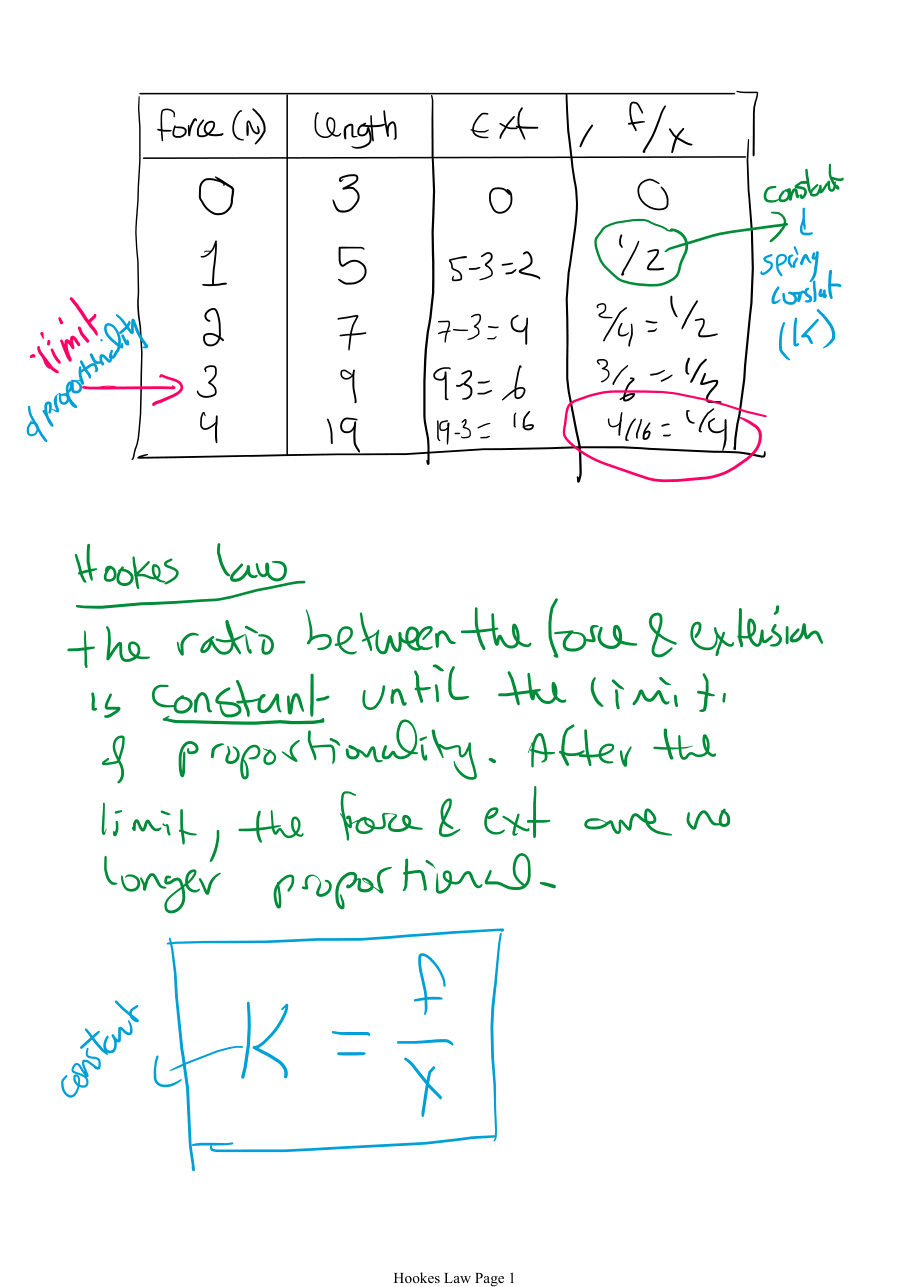 force (N) length Ext f/x
0 3 0 0
1 5 5-3=2 1/2
2 7 7-3=4 2/4 = 1/2
3 9 9-3=6 3/6 = 1/2
4 19 19-3= 16 4/16 = 1/4
constant
spring
constat
(K)
limit
of proportinality
Hookes law
the ratio between the force & extension
is constant until the limit
of proportionality. After the
limit, the force & ext are no
longer proportional.
constant
K = f/x
Hookes Law Page 1